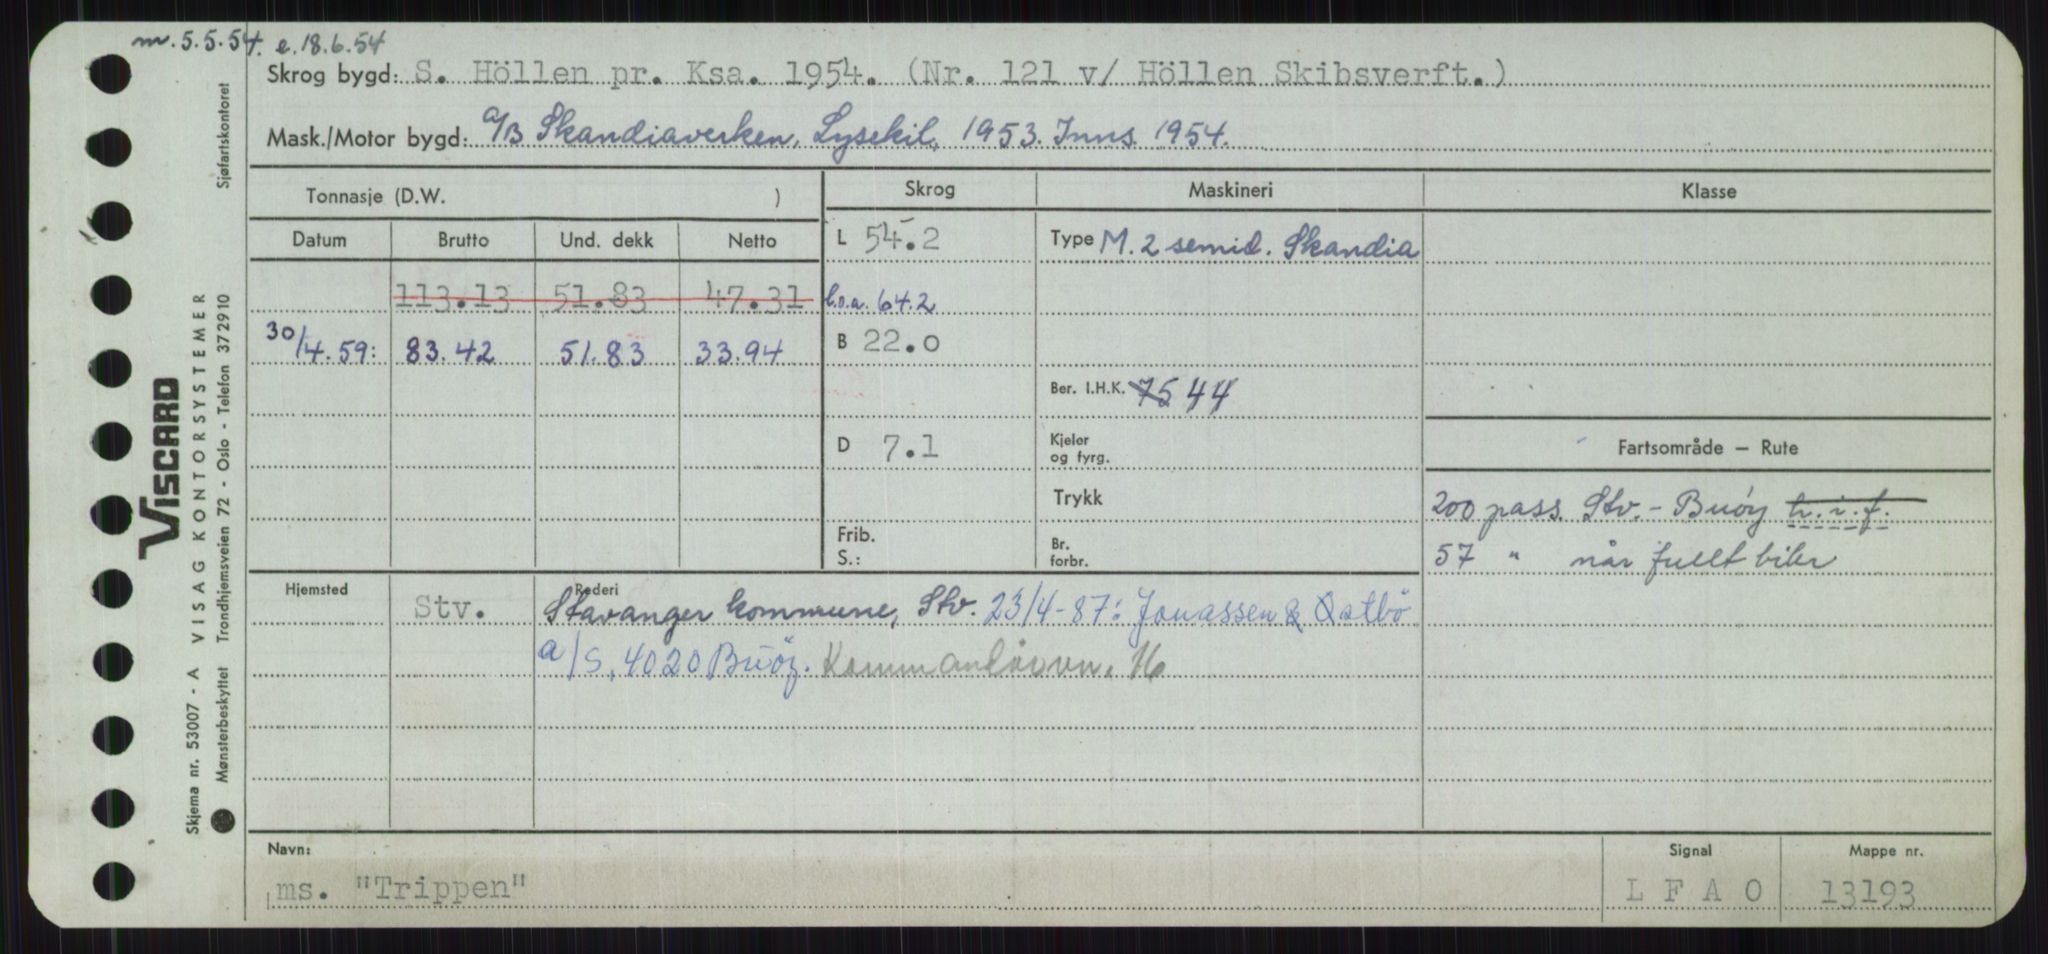 m. 5.5.54. e. 18.6.54
Skrog bygd: S. Höllen pr. Ksa. 1954. (Nr. 121 v/ Höllen Skibsverft.)
Mask./Motor bygd: a/B Skandiaverken, Lysekil, 1953. Inns. 1954.
Tonnasje (D.W. )
Skrog
Maskineri
Klasse
Datum Brutto Und. dekk Netto
L 54.2
Type M. 2 semid. Skandia
113.13 51.83 47.31
l.o.a. 64.2
30/4.59: 83.42 51.83 33.94
B 22.0
Ber. I.H.K. 75 44
D 7.1
Kjeler
og fyrg.
Fartsområde — Rute
Trykk
200 pass. Stv. - Buöy t.i.f.
Frib.
S.:
Br.
forbr.
57 " når fullt biler
Hjemsted
Rederi
Stv.
Stavanger kommune, Stv. 23/4-87: Jonassen & Östbö
a/s, 4020 Buöy. 16
Navn:
ms. "Trippen"
Signal
L F A O
Mappe nr.
13193
Sjøfartskontoret
VISCARD
VISAG KONTORSYSTEMER
Trondhjemsveien 72 - Oslo - Telefon 372910
Skjema nr. 53007 - A
Mønsterbeskyttet